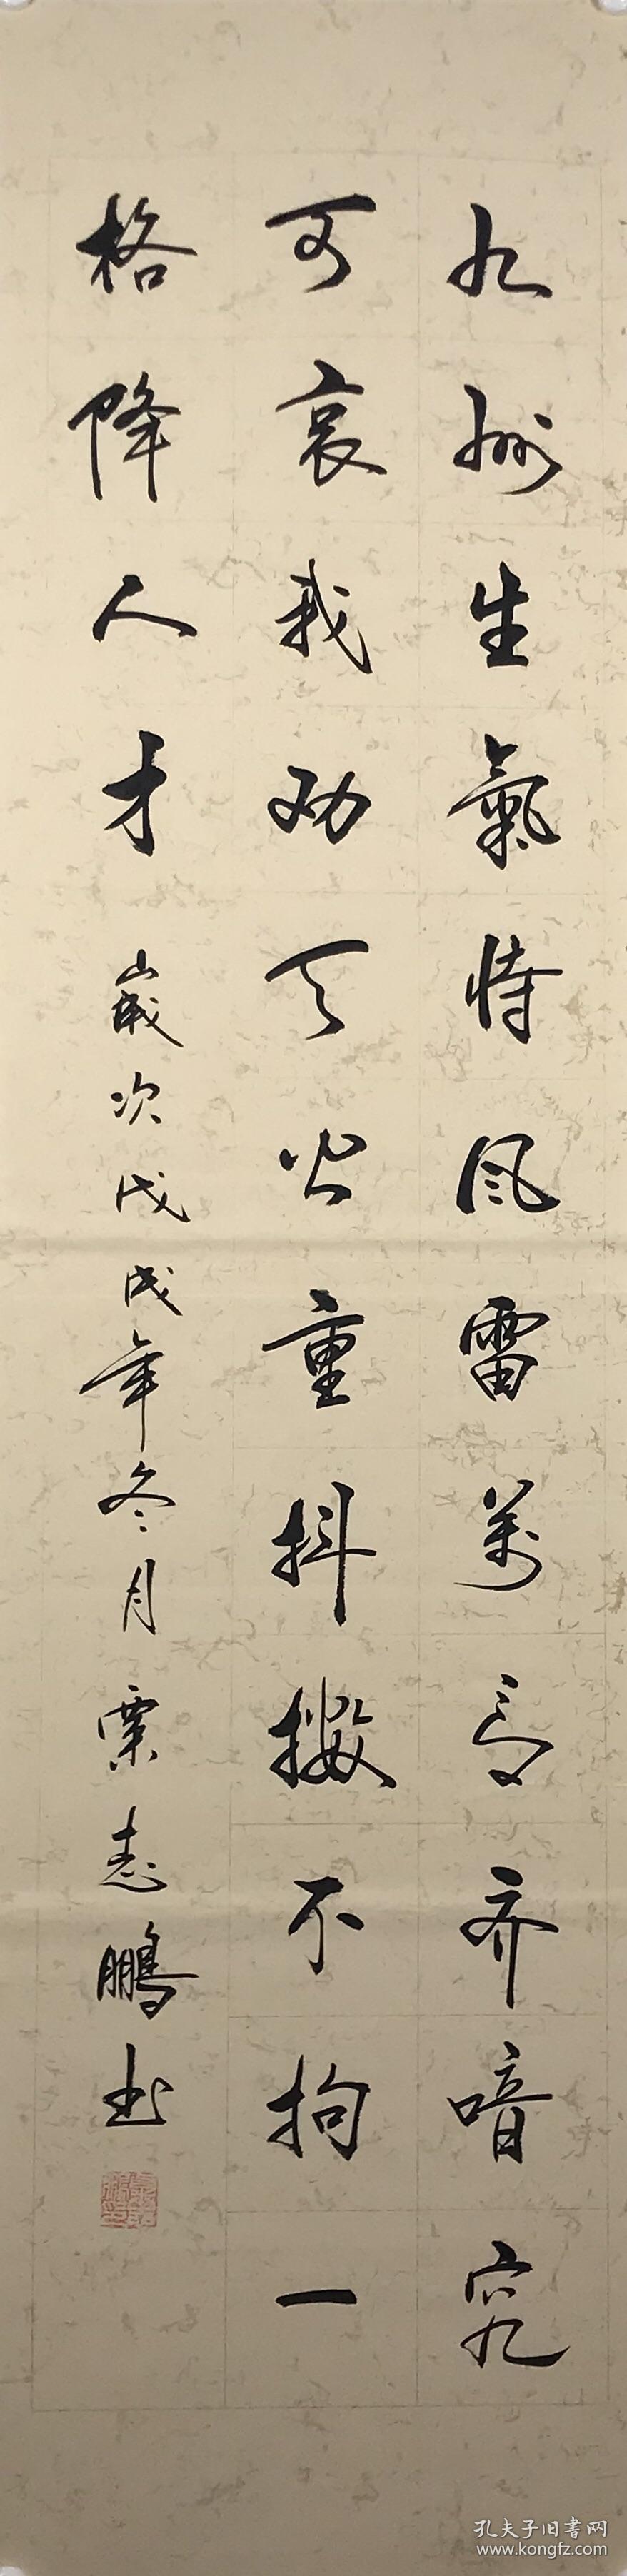 九州生氣恃风雷萬马齐喑究
可哀我劝天公重抖擞不拘一
格降人才 歲次戊戌年冬月栗志鵬书
孔夫子旧書网
www.kongfz.com